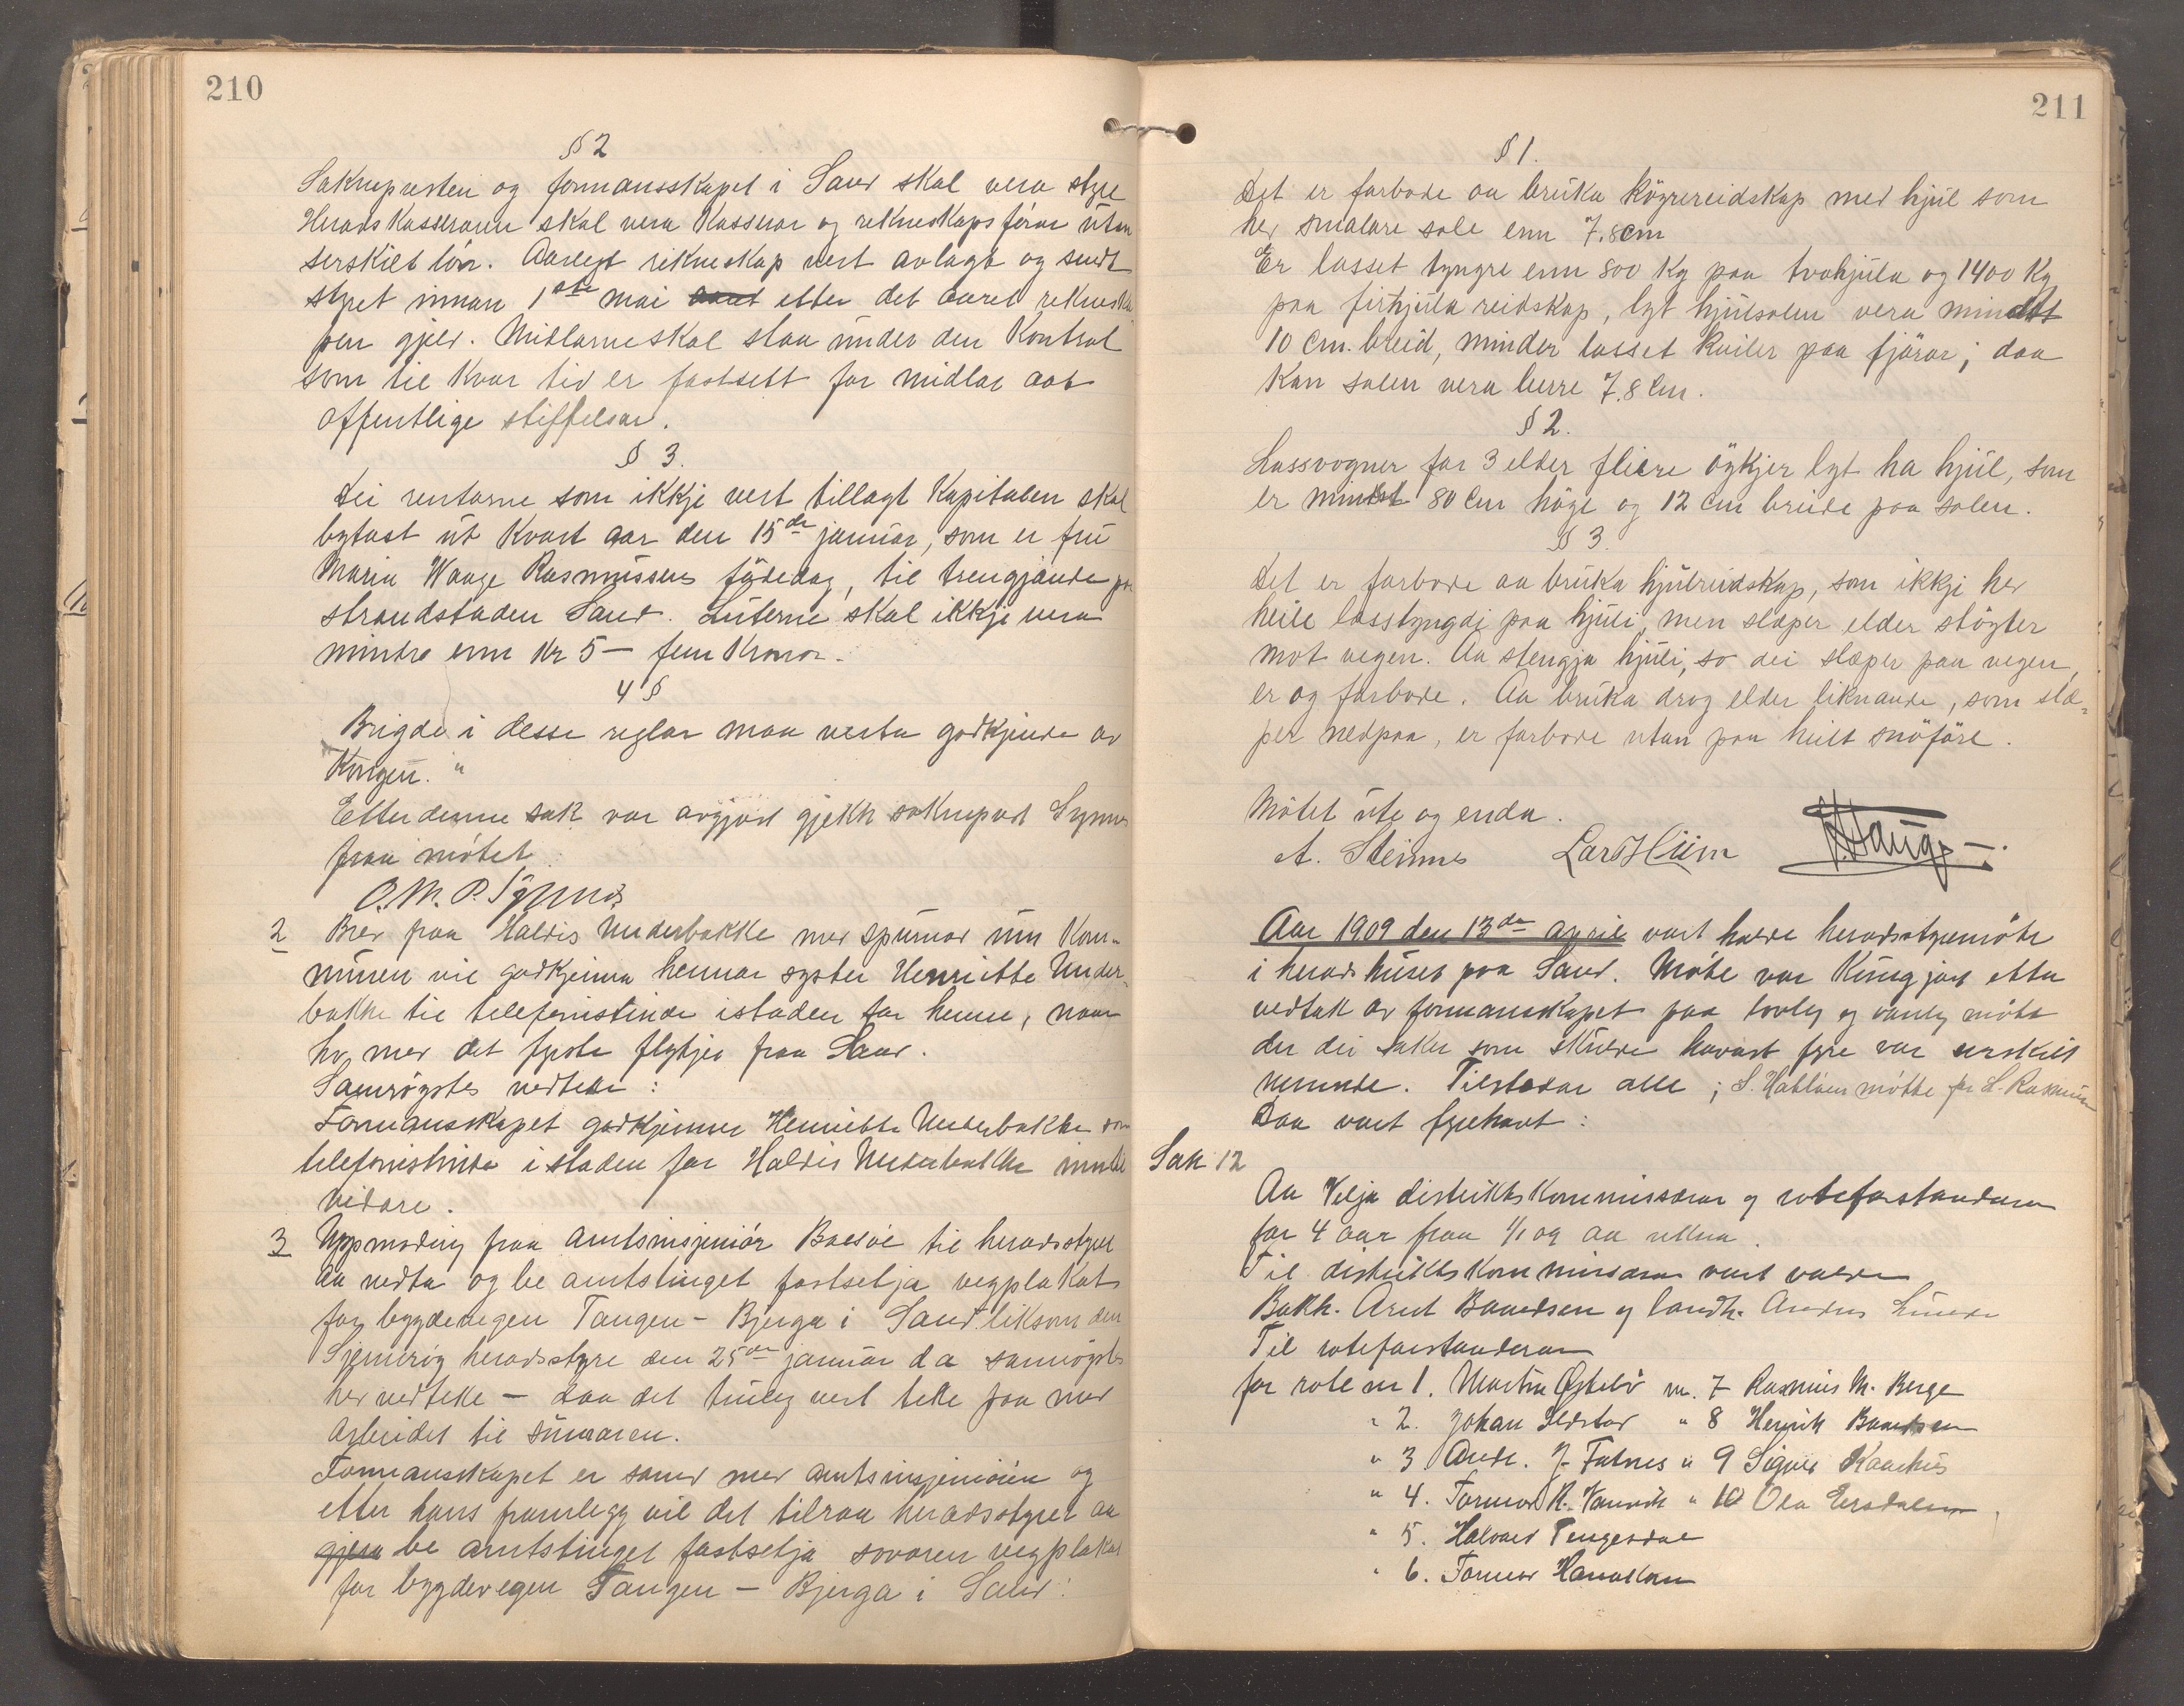 210
§ 2
Soknepresten og formansskapet i Sand skal vera styre
Heradskasseraren skal vera Kasserar og rekneskapsförar utan
serskilt lön. Aarlegt rekneskap vert avlagt og sendt
styret innan 1ste mai aaret etter det aaret rekneska
pen gjeld. Midlarne skal staa under den Kontrol
som til Kvar tid er fastsett for midlar aat
offentlige stiftelsar.
§ 3.
Dei rentorne som ikkje vert tillagt Kapitalen skal
bytast ut Kvart aar den 15de januar, som er fru
Maria Waage Rasmussens födedag, til trengjande paa
strandstaden Sand. Luterne skal ikkje vera
mindre enn Kr 5 — fem Kronor.
4 §
Brigde i desse reglar maa verta godkjende av
Kongen. "
Etter denne sak var avgjord gjekk sokneprest Synnes
fraa mötet.
O. M. P. Synnes
2 Brev fraa Haldis Underbakke med spurnad um Kom-
munen vil godkjenna hennar syster Henriette Under-
bakke til telefonistinde istaden for henne, naar
ho med det fyrste flytjer fraa Sand.
Samröystes vedteke :
Formansskapet godkjenner Henriette Underbakke som
telefonistinde i staden for Haldis Underbakke inntil
vidare.
3 Uppmoding fraa amtsinsjeniör til heradsstyret
aa vedta og be amtstinget fastsetja vegplakat
for bygdevegen Tangen - Bjerga i Sand liksom den
heradsstyre den 25de januar d a samröystes
her vedteke — daa det truleg vert teke paa med
arbeidet til sumaren.
Formansskapet er samd med amtsinsjeniören og
etter hans framlegg vil det tilraa heradsstyret aa
gjera be amtstinget fastsetja sovoren vegplakat
for bygdevegen Tangen — Bjerga i Sand :
211
§ 1.
Det er forbode aa bruka Köyrereidskap med hjul som
her smalare sole enn 7.8cm
Er lasset tyngre enn 800 Kg paa tvohjula og 1400 Kg
paa firhjula reidskap, lyt hjulsolen vera mindst
10 Cm. breid, minder lasset kviler paa fjörar; daa
Kan solen vera berre 7.8 Cm.
§ 2.
Lassvogner for 3 elder fleire öykjer lyt ha hjul, som
er mindst 80 Cm höge og 12 Cm breide paa solen.
§ 3.
Det er forbode aa bruka hjulreidskap, som ikkje her
heile lasstyngdi paa hjuli, men slæper elder stöyter
mot vegen. Aa stengja hjuli, so dei slæper paa vegen,
er og forbode. Aa bruka drog elder liknande, som slæ=
per nedpaa, er forbode utan paa heilt snöföre.
Mötet ute og enda.
A. Steinnes Lars Hiim
Aar 1909 den 13de april vart halde heradsstyremöte
i heradshuset paa Sand. Möte var Kunngjort etter
vedtak av formansskapet paa lovleg og vanleg möte
der dei saker som skulde havast fyre var serskilt
nemnde. Tilstadar alle ; S. mötte for
Daa vart fyrehavt :
Sak 12
Aa Velja distriktskommissærar og roteforstandarar
for 4 aar fraa 1/1 09 aa rekna.
Til distriktskommissærar vart valde
Bakh. Arnt Baardsen og landh.
Til roteforstandarar
for rote nr 1. nr. 7 Rasmus M. Berge
" 2. Johan " 8 Henrik Baardsen
" 3 Andr. J. Fatnes " 9 Sigurd
" 4. Tormod K. Vanvik " 10 Ola
" 5. Halvard Tengesdal
" 6. Tormod